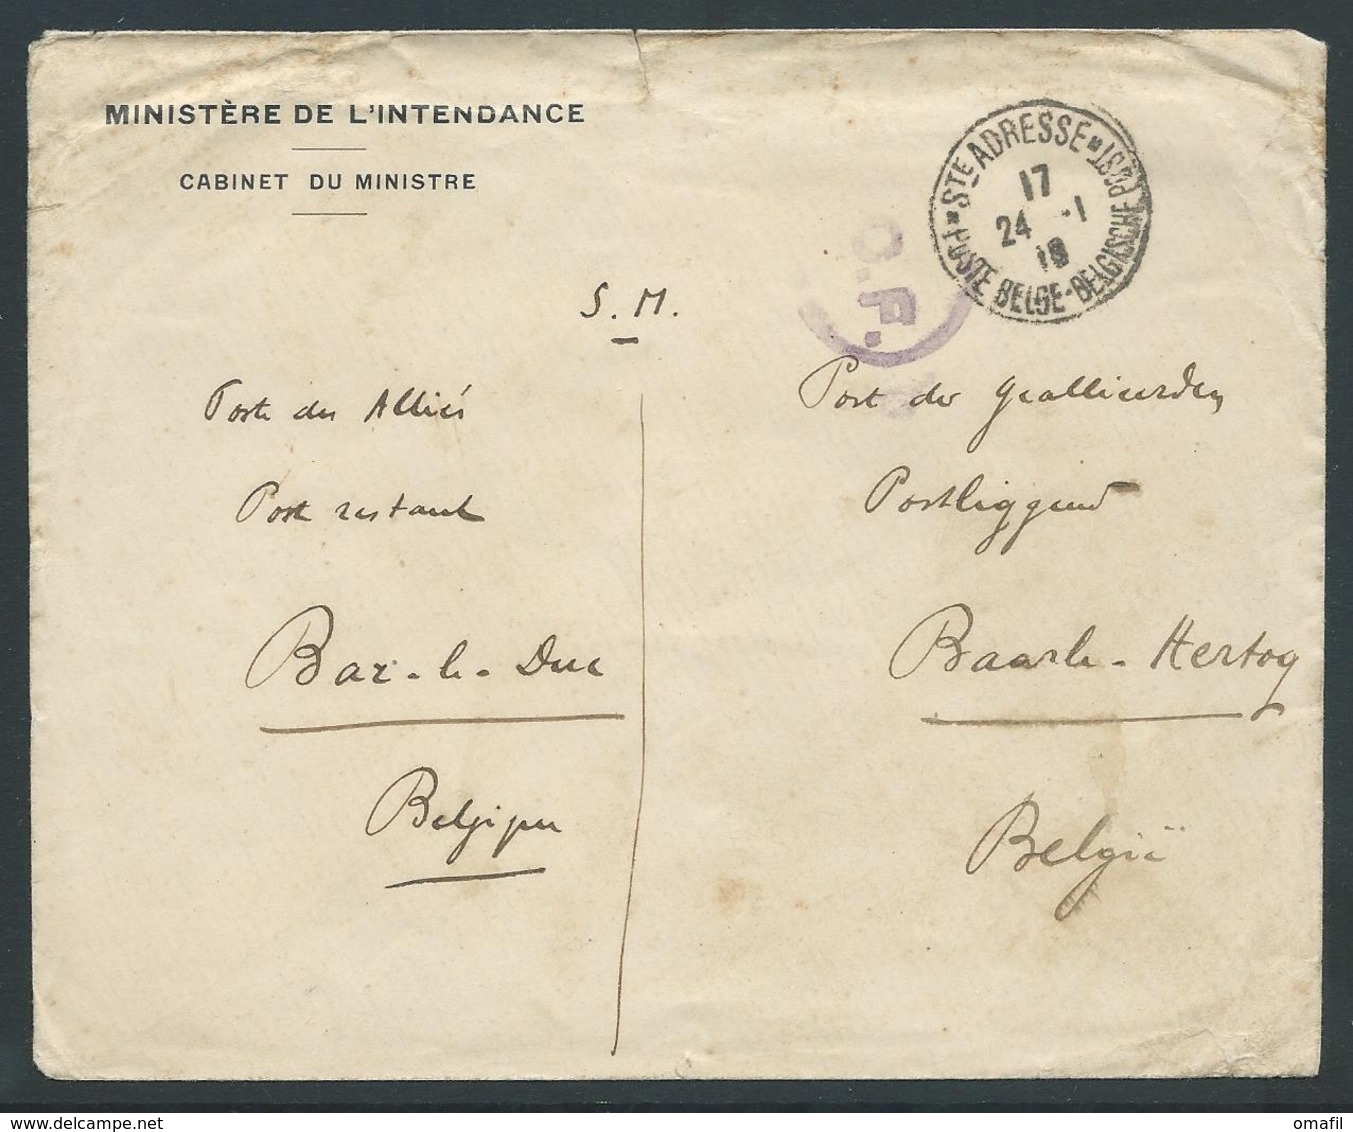 MINISTÈRE DE L'INTENDANCE
CABINET DU MINISTRE
STE ADRESSE
POSTE BELGE-BELGISCHE POST
17
24 -1
18
C.F.
S. M.
Poste des Alliés
Post restant
Bar-le-Duc
Belgique
Post der Geallieerden
Postliggend
Baarle-Hertog
België
omafil